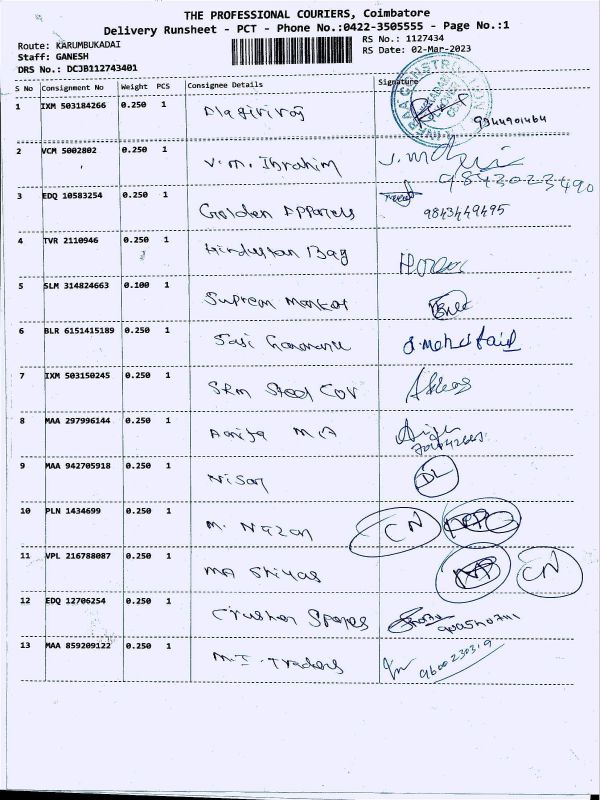 THE PROFESSIONAL COURIERS, Coimbatore
Delivery Runsheet - PCT - Phone No.:0422-3505555 - Page No.:1
Route: KARUMBUKADAI RS No.: 1127434
Staff: GANESH RS Date: 02-Mar-2023
DRS No.: DCJB112743401
S No Consignment No Weight PCS Consignee Details Signature
1 IXM 503184266 0.250 1
9344901464
2 VCM 5002802 0.250 1 V.M. Ibrahim
9843023490
3 EDQ 10583254 0.250 1 Golden Apparels 9843449495
4 TVR 2110946 0.250 1 Hindustan Bag
5 SLM 314824663 0.100 1 Suprem Market
6 BLR 6151415189 0.250 1 Sasi
7 IXM 503150245 0.250 1 SRM Steel
8 MAA 297996144 0.250 1
9 MAA 942705918 0.250 1 Nison DL
10 PLN 1434699 0.250 1 M. CN
11 VPL 216788087 0.250 1 MA CN
12 EDQ 12706254 0.250 1 Crusher Spares
13 MAA 859209122 0.250 1 M.I. Traders 9600230319